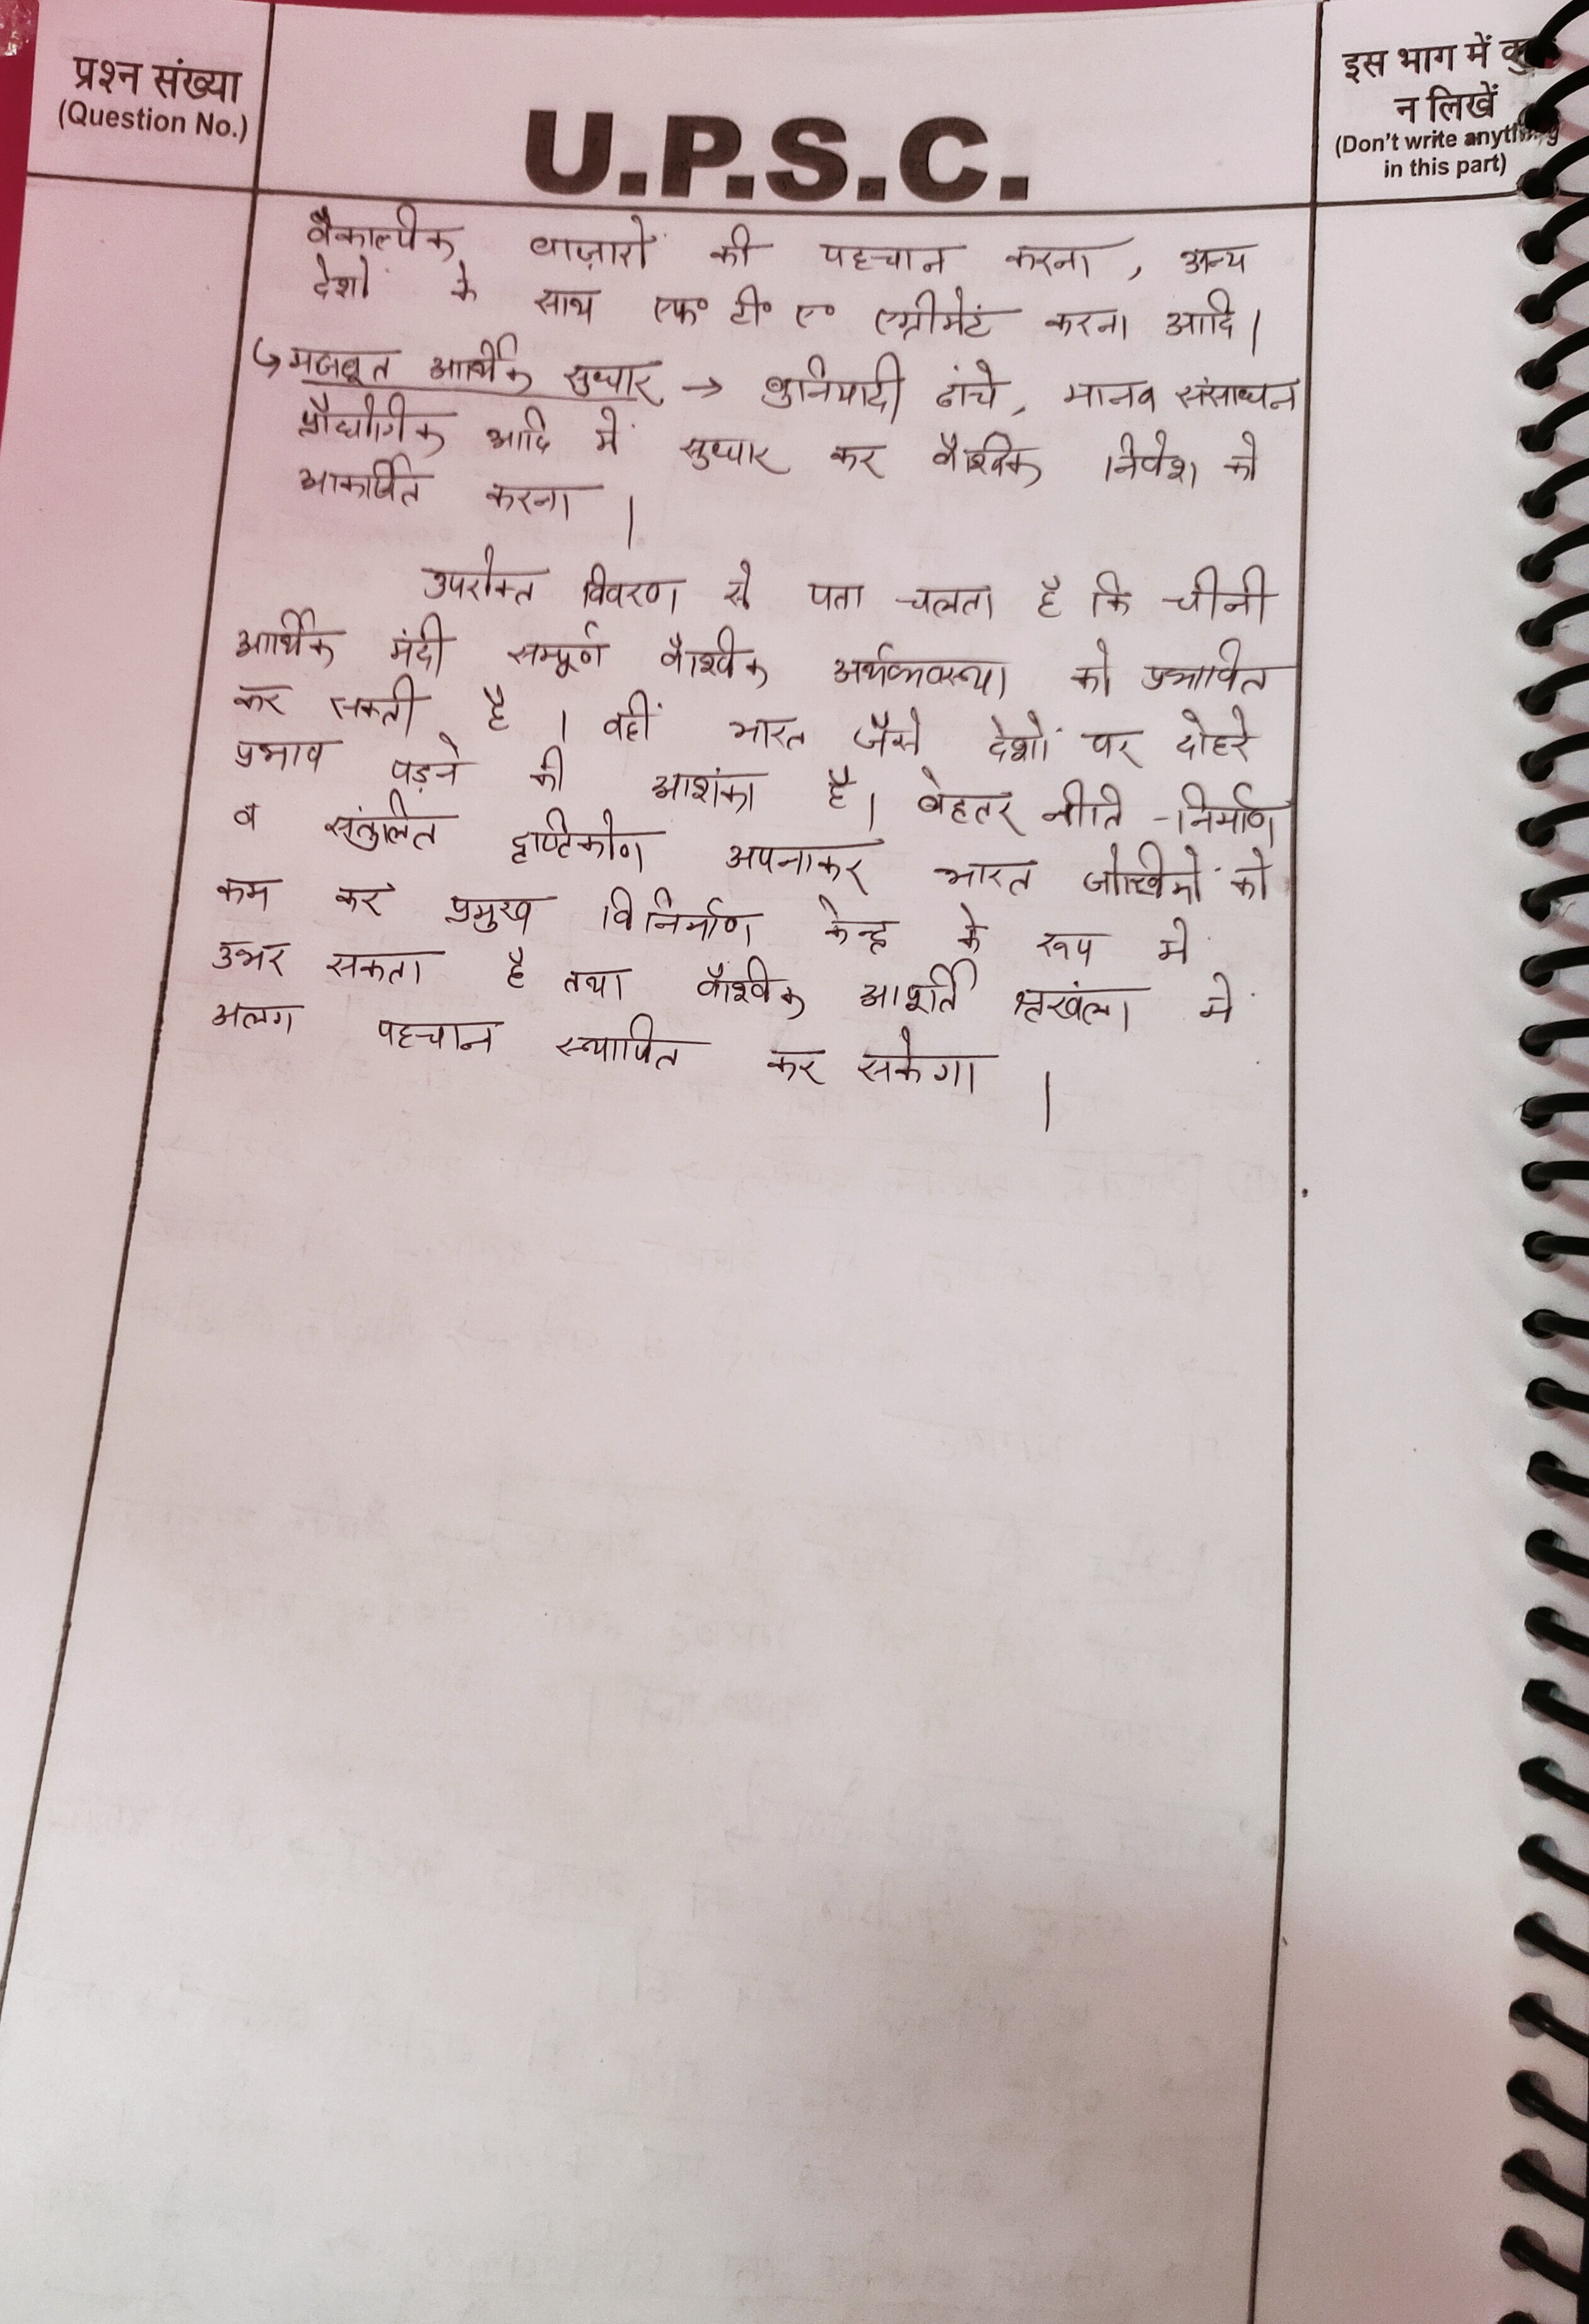 प्रश्न संख्या
(Question No.)
U.P.S.C.
इस भाग में कु
न लिखें
(Don't write anything
in this part)
वैकल्पिक बाज़ारों की पहचान करना, अन्य
देशों के साथ एफ॰ टी॰ ए॰ एग्रीमेंट करना आदि।
↳ मजबूत आर्थिक सुधार → बुनियादी ढांचे, मानव संसाधन
प्रौद्योगिक आदि में सुधार कर वैश्विक निवेश को
आकर्षित करना।
उपरोक्त विवरण से पता चलता है कि चीनी
आर्थिक मंदी सम्पूर्ण वैश्विक अर्थव्यवस्था को प्रभावित
कर सकती है। वहीं भारत जैसे देशों पर दोहरे
प्रभाव पड़ने की आशंका है। बेहतर नीति-निर्माण
व संतुलित दृष्टिकोण अपनाकर भारत जोखिमों को
कम कर प्रमुख विनिर्माण केन्द्र के रूप में
उभर सकता है तथा वैश्विक आपूर्ति श्रृखंला में
अलग पहचान स्थापित कर सकेगा।